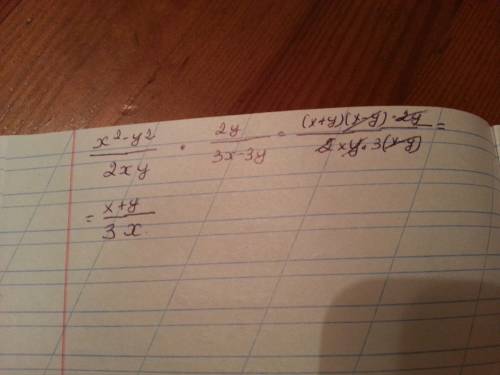 x²-y²/2xy · 2y/3x-3y = (x+y)(x-y)·2y/2xy·3(x-y) =
= x+y/3x